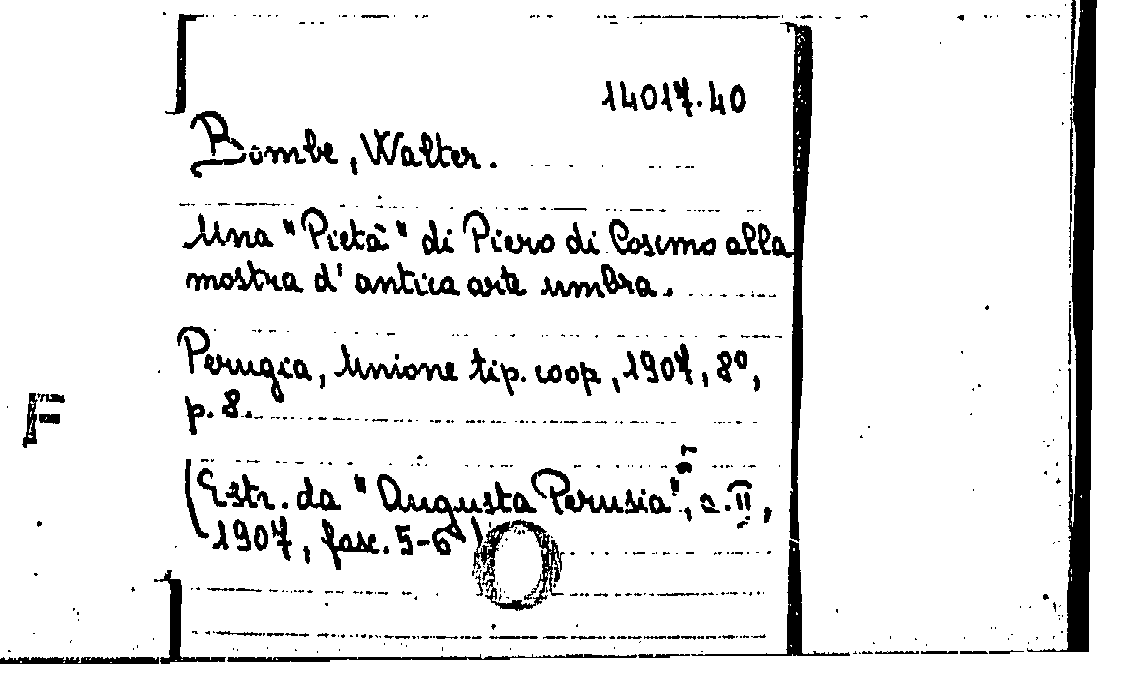 14017.40
Bombe, Walter.
Una "Pietà" di Piero di Cosimo alla
mostra d'antica arte umbra.
Perugia, Unione tip. coop, 1907, 8º,
p. 8.
F
(Estr. da "Augusta Perusia", a. II,
1907, fasc. 5-6)